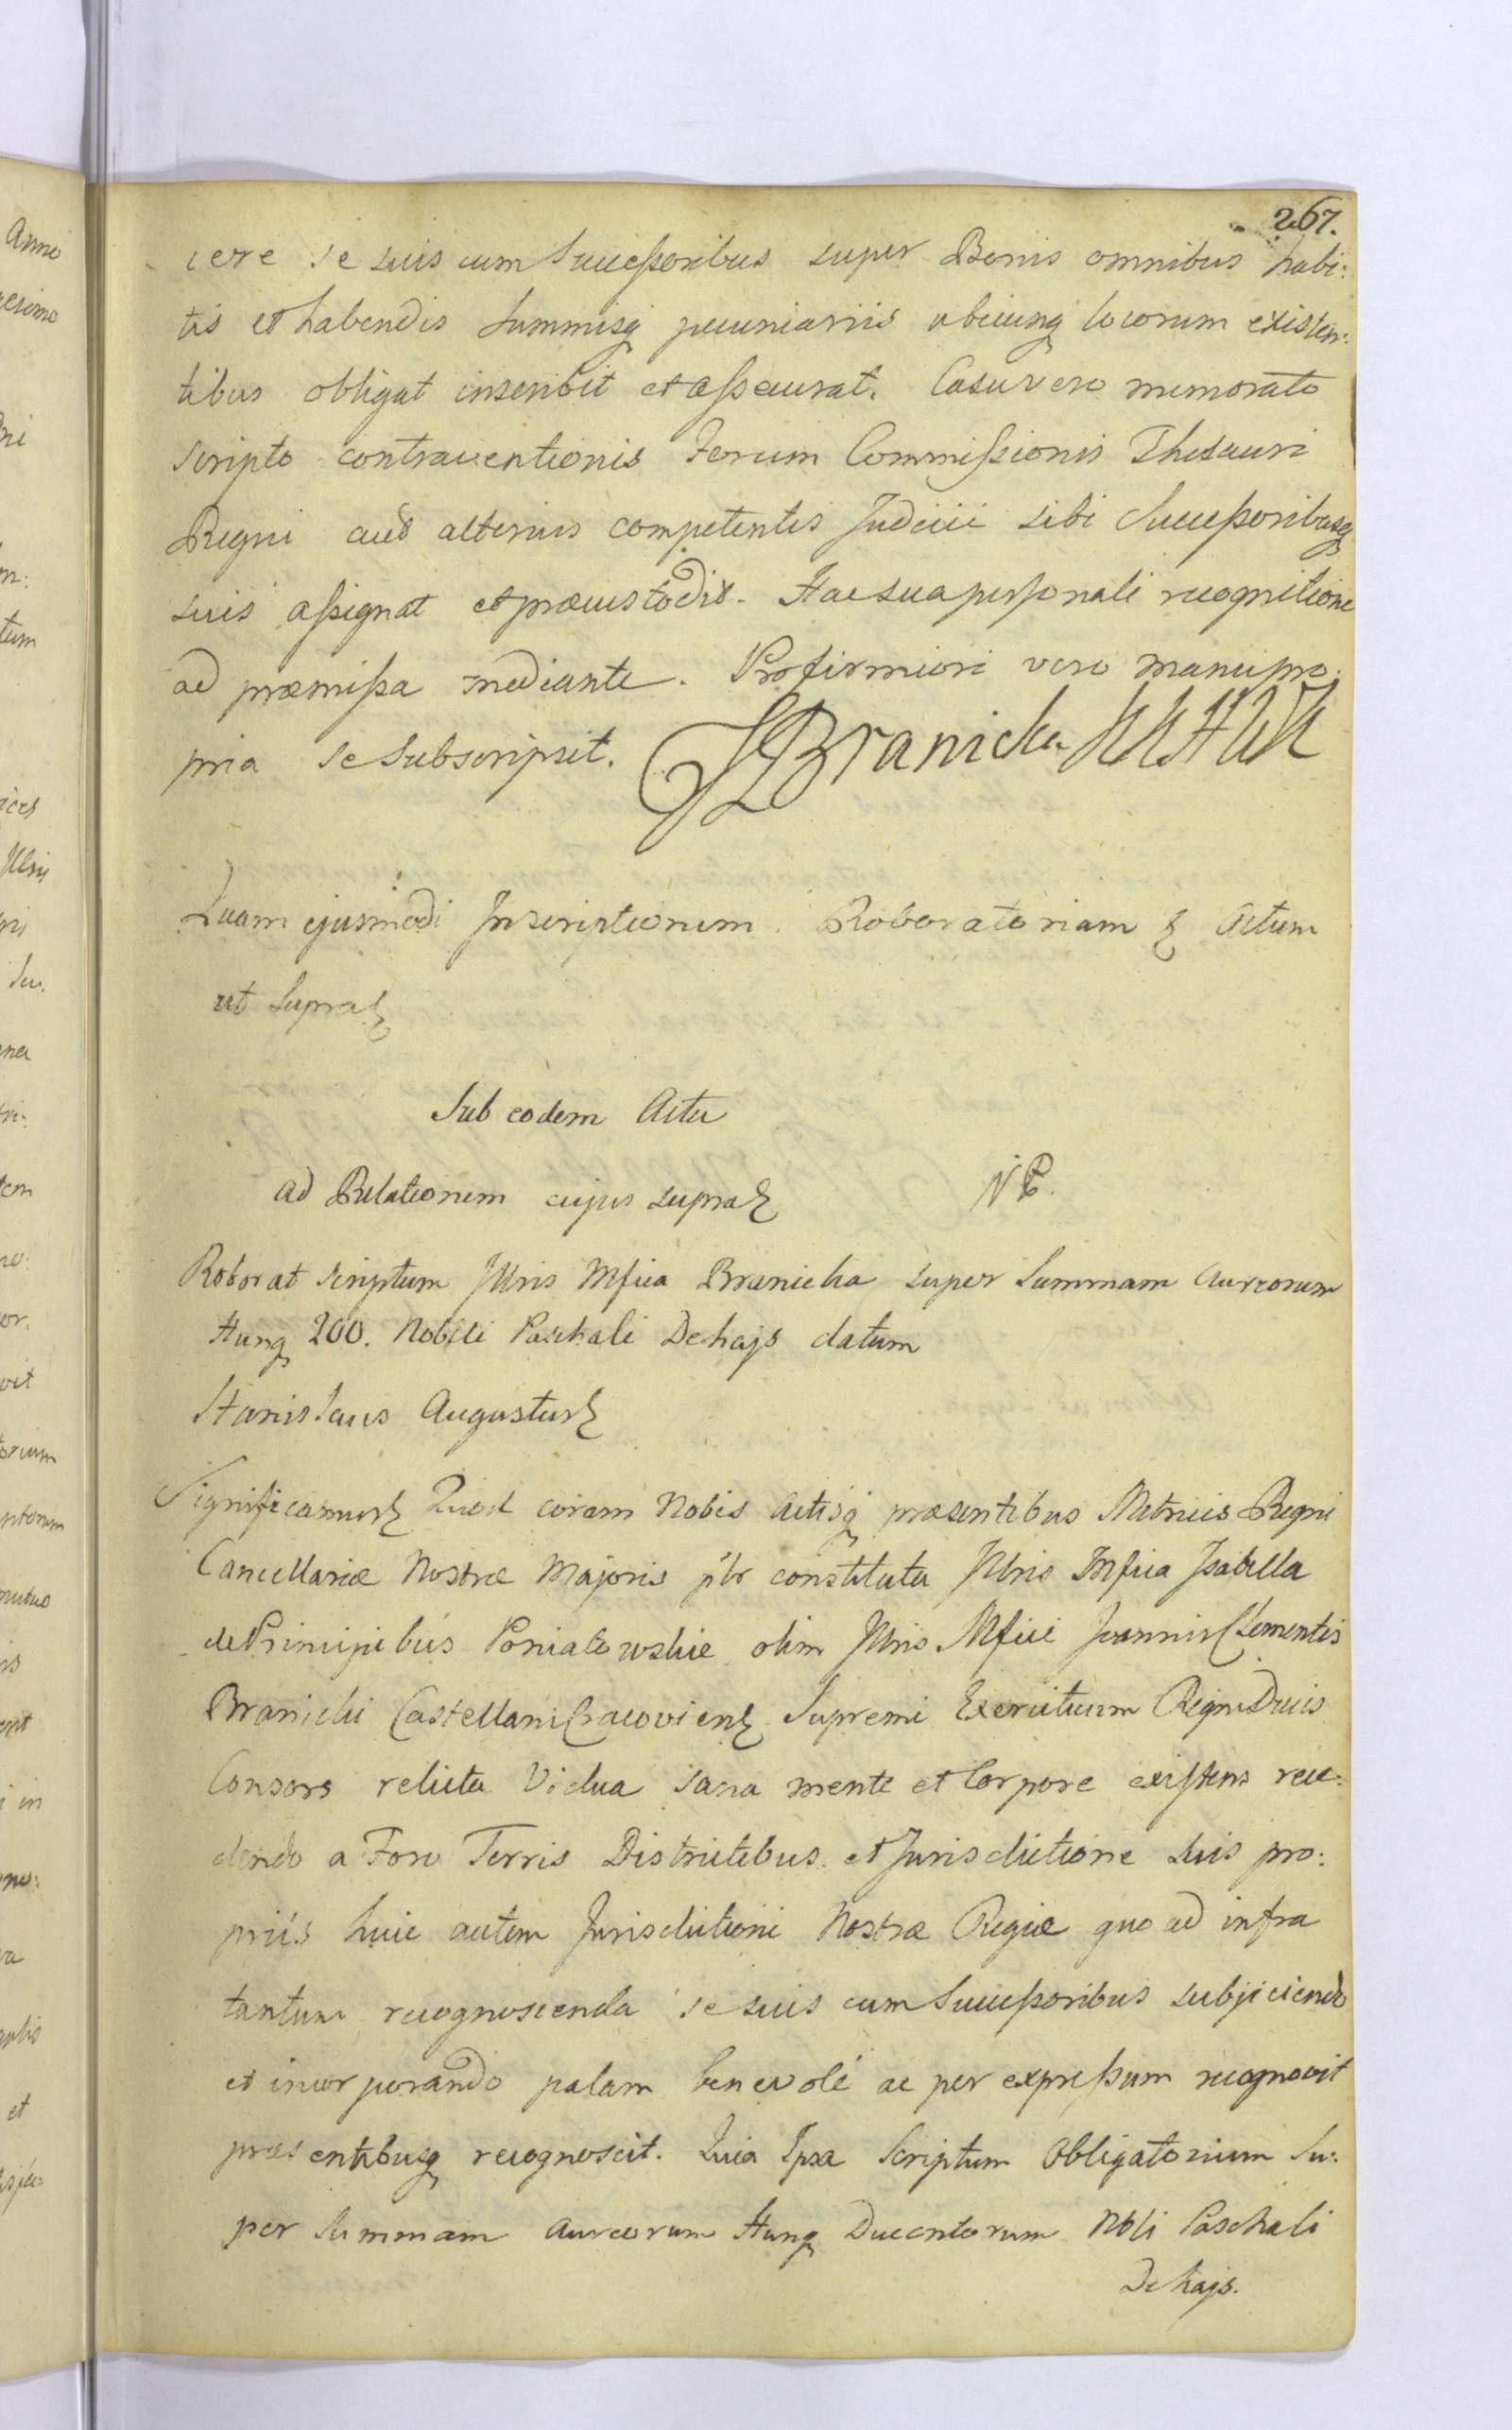 267.
cere se suis cum Successoribus super Bonis omnibus habi:
tis et habendis Summisq pecuniariis ubicunq locorum existen:
tibus obligat inscribit et assecurat. Casu vero memorato
scripto contraventionis Forum Commissionis Thesauri
Regni aut alterius competentis Judicii sibi Successoribusq
suis assignat et præcustodit. Hac sua personali recognitione
ad præmissa mediante. Pro firmiori vero manu pro:
pria se Subscripsit. Branicka
Quam ejusmodi Inscriptionem Roboratoriam Actum
ut Supra
Sub eodem Actu
ad Relationem cujus supra
Roborat scriptum Illris Mfica Branicka super Summam Aureorum
Hung 200. Nobili Paschali Dehajs datum
Stanislaus Augustus
Significamus Quod coram Nobis Actisq præsentibus Metrices Regni
Cancellariæ Nostræ Majoris pltr constituta Illris Mfica Isabella
de Principibus Poniatowskie olim Illris Mfici Joannis Clementis
Branicki Castellani Cracovien Supremi Exercituum Regni Ducis
Consors relicta Vidua sana mente et Corpore existens rece:
dendo a Foro Terris Districtibus et Jurisdictione suis pro:
priis huic autem Jurisdictioni Nostræ Regiæ quo ad infra
tantum recognoscenda se suis cum Successoribus subjiciendo
et incorporando palam benevole ac per expressum recognovit
præsentibusq recognoscit. Quia Ipsa Scriptum Obligatorium Su:
per Summam Aureorum Hung Ducentorum Nbli Paschali
Dehajs.